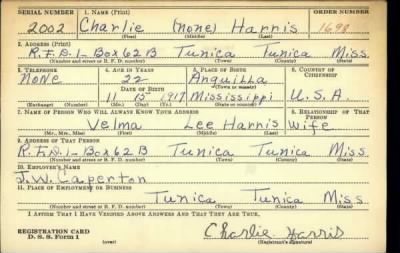 SERIAL NUMBER 1. NAME (Print) ORDER NUMBER
2002 Charlie (none) Harris 1698
(First) (Middle) (Last)
2. ADDRESS (Print)
R.F.D.1-Box 62B Tunica Tunica Miss.
(Number and street or R. F. D. number) (Town) (County) (State)
3. TELEPHONE 4. AGE IN YEARS 5. PLACE OF BIRTH 6. COUNTRY OF CITIZENSHIP
None 22 Anguilla
DATE OF BIRTH (Town or county)
11 15 1917 Mississippi U.S.A.
(Exchange) (Number) (Mo.) (Day) (Yr.) (State or country)
7. NAME OF PERSON WHO WILL ALWAYS KNOW YOUR ADDRESS 8. RELATIONSHIP OF THAT PERSON
Velma Lee Harris Wife
(Mr., Mrs., Miss) (First) (Middle) (Last)
9. ADDRESS OF THAT PERSON
R.F.D.1-Box 62B Tunica Tunica Miss.
(Number and street or R. F. D. number) (Town) (County) (State)
10. EMPLOYER'S NAME
J.W. Caperton
11. PLACE OF EMPLOYMENT OR BUSINESS
Tunica Tunica Miss.
(Number and street or R. F. D. number) (Town) (County) (State)
I AFFIRM THAT I HAVE VERIFIED ABOVE ANSWERS AND THAT THEY ARE TRUE.
REGISTRATION CARD
D. S. S. Form 1 (over) Charlie Harris
(Registrant's signature)